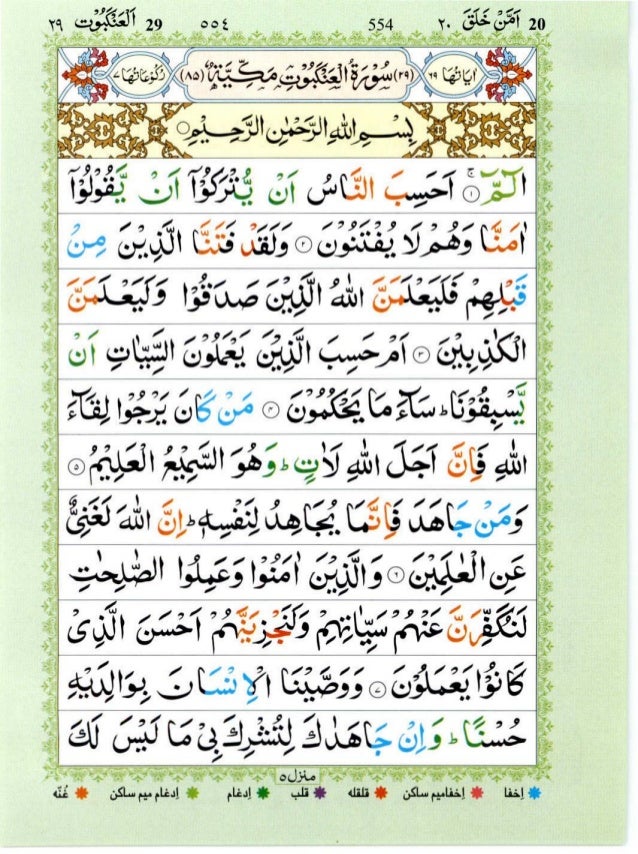 اَمَّنْ خَلَقَ ٢٠ 20 554 ٥٥٤ 29 اَلْعَنْكَبُوْت ٢٩
اٰيَاتُهَا ٦٩ (٢٩) سُوْرَةُ الْعَنْكَبُوْتِ مَكِّيَّةٌ (٨٥) رُكُوْعَاتُهَا ٧
بِسْمِ اللّٰهِ الرَّحْمٰنِ الرَّحِيْمِ
الٓمّٓ ۚ‏ ١ اَحَسِبَ النَّاسُ اَنْ يُّتْرَكُوْۤا اَنْ يَّقُوْلُوْۤا
اٰمَنَّا وَهُمْ لَا يُفْتَنُوْنَ ٢ وَلَقَدْ فَتَنَّا الَّذِيْنَ مِنْ
قَبْلِهِمْ فَلَيَعْلَمَنَّ اللّٰهُ الَّذِيْنَ صَدَقُوْا وَلَيَعْلَمَنَّ
الْكٰذِبِيْنَ ٣ اَمْ حَسِبَ الَّذِيْنَ يَعْمَلُوْنَ السَّيِّاٰتِ اَنْ
يَّسْبِقُوْنَا ؕ سَآءَ مَا يَحْكُمُوْنَ ٤ مَنْ كَانَ يَرْجُوْا لِقَآءَ
اللّٰهِ فَاِنَّ اَجَلَ اللّٰهِ لَاٰتٍ ؕ وَهُوَ السَّمِيْعُ الْعَلِيْمُ ٥
وَمَنْ جَاهَدَ فَاِنَّمَا يُجَاهِدُ لِنَفْسِهٖ ؕ اِنَّ اللّٰهَ لَغَنِىٌّ
عَنِ الْعٰلَمِيْنَ ٦ وَالَّذِيْنَ اٰمَنُوْا وَعَمِلُوا الصّٰلِحٰتِ
لَنُكَفِّرَنَّ عَنْهُمْ سَيِّاٰتِهِمْ وَلَنَجْزِيَنَّهُمْ اَحْسَنَ الَّذِىْ
كَانُوْا يَعْمَلُوْنَ ٧ وَوَصَّيْنَا الْاِنْسَانَ بِوَالِدَيْهِ
حُسْنًا ؕ وَاِنْ جَاهَدٰكَ لِتُشْرِكَ بِىْ مَا لَيْسَ لَكَ
منزل ٥
اِخفا اِخفامیم ساکن قلقله قلب اِدغام اِدغام میم ساکن غُنّه